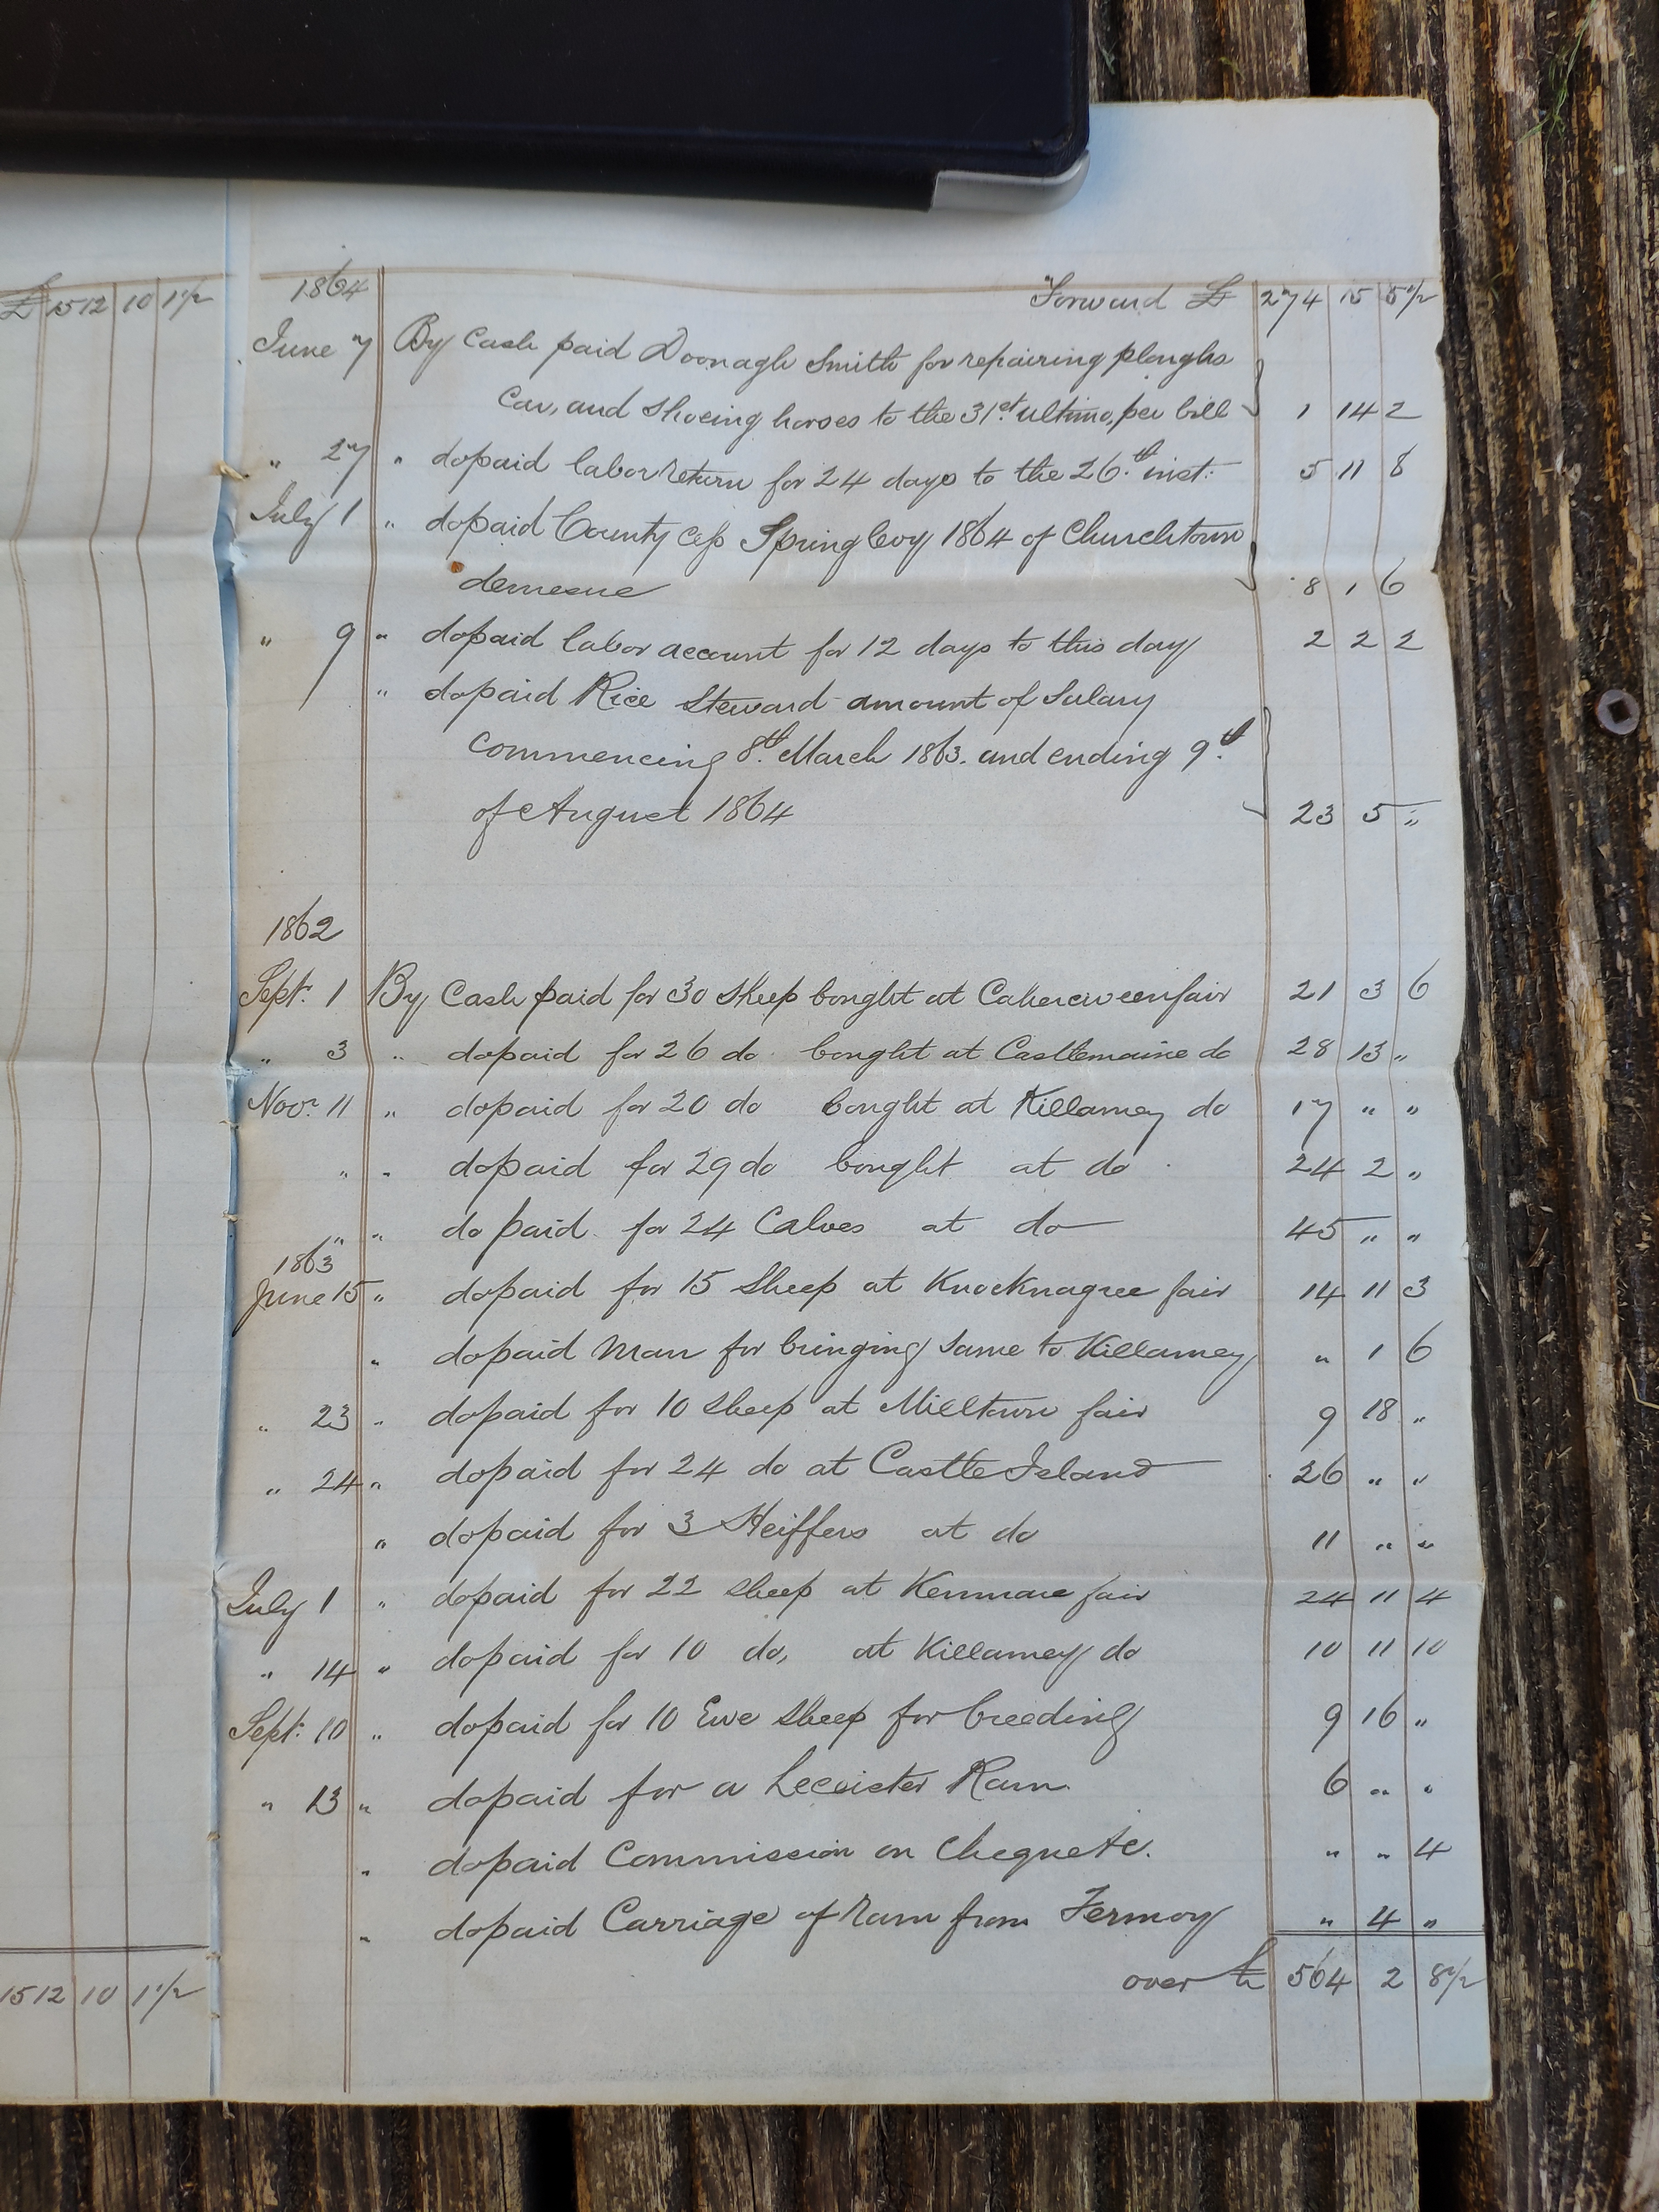 £ 1512 10 1 1/2
1864 Forward £ 274 15 5 1/2
June 7 By Cash paid Doonagh Smith for repairing ploughs
Car, and Shoeing horses to the 31st. ultimo, per bill 1 14 2
" 27 " do paid labor return for 24 days to the 26.th inst: 5 11 8
July 1 " do paid County Cess Spring levy 1864 of Churchtown
demesne 8 1 6
" 9 " do paid labor account for 12 days to this day 2 2 2
" do paid Rice Steward amount of Salary
Commencing 8th. March 1863. and ending 9.th
of August 1864 23 5 "
1862
Sept. 1 By Cash paid for 30 Sheep bought at Caherciveen fair 21 3 6
" 3 " do paid for 26 do bought at Castlemaine do 28 13 "
Novr. 11 " do paid for 20 do bought at Killarney do 17 " "
" " do paid for 29 do bought at do 24 2 "
" " do paid for 24 Calves at do 45 " "
1863
June 15 " do paid for 15 Sheep at Knocknagree fair 14 11 3
" do paid Man for bringing Same to Killarney " 1 6
" 23 " do paid for 10 Sheep at Milltown fair 9 18 "
" 24 " do paid for 24 do at Castle Island 26 " "
" do paid for 3 Heiffers at do 11 " "
July 1 " do paid for 22 Sheep at Kenmare fair 24 11 4
" 14 " do paid for 10 do, at Killarney do 10 11 10
Sept: 10 " do paid for 10 Ewe Sheep for breeding 9 16 "
" 13 " do paid for a Leceister Ram 6 " "
" do paid Commission on Cheque &c. " " 4
" do paid Carriage of Ram from Fermoy " 4 "
over £ 564 2 8 1/2
1512 10 1 1/2